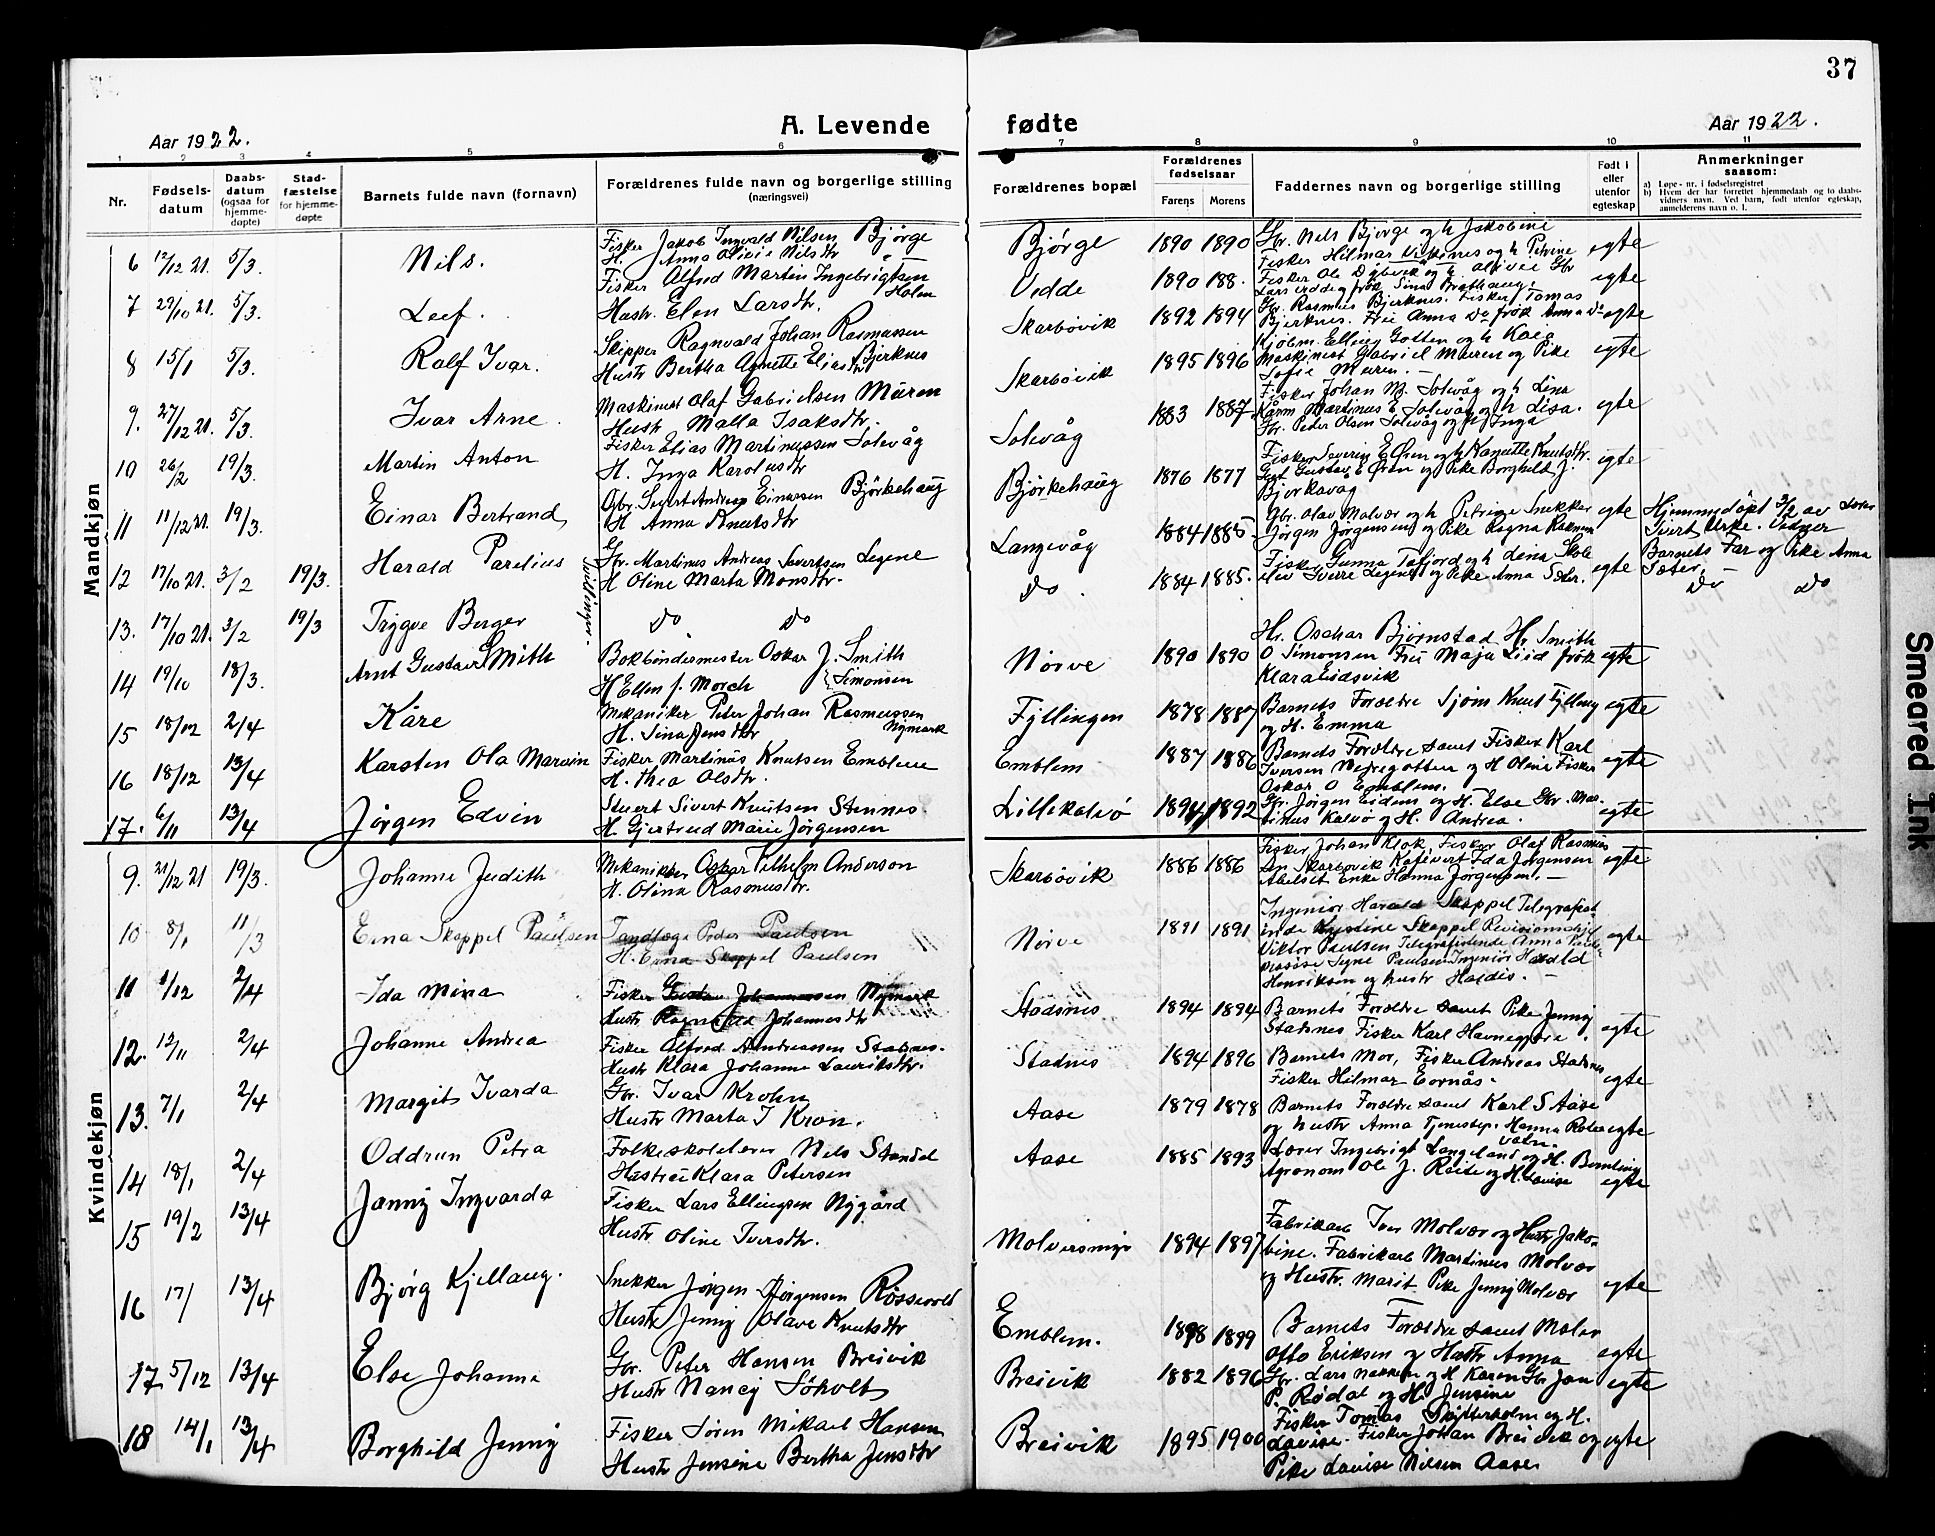 37
Aar 1922.
A. Levende
fødte
Aar 1922.
1 2 3 4 5 6 7 8 9 10 11
Nr.
Fødsels-
datum
Daabs-
datum
(ogsaa for
hjemme-
døpte)
Stad-
fæstelse
for hjemme-
døpte
Barnets fulde navn (fornavn)
Forældrenes fulde navn og borgerlige stilling
(næringsvei)
Forældrenes bopæl
Forældrenes
fødselsaar
Farens
Morens
Faddernes navn og borgerlige stilling
Født i
eller
utenfor
egteskap
Anmerkninger
saasom:
a) Løpe-nr. i fødselsregistret
b) Hvem der har forrettet hjemmedaab og to daabs-
vidners navn. Ved barn, født utenfor egteskap,
anmelderens navn o. l.
Mandkjøn
6 12/12 21. 5/3. Nils.
Fisker Jakob Ingvald Nilsen Bjørge
H. Anna Olivie Nilsdtr
Bjørge 1890 1890
Gbr. Nels Bjørge og h Jakobine
Fisker Hilmar og h Petrine
egte
7 29/10 21. 5/3. Leif.
Fisker Alfred Martin Ingebrigtsen
Holm
Hustr. Elen Larsdtr.
Vedde 1890 188.
Fisker Ole og h. Olivie Gbr
Lars Vedde og frøk Sina
egte
8 15/1 5/3. Rolf Ivar.
Skipper Ragnvald Johan Rasmussen
Bjerknes
Hustr Bertha Agnette Eliasdtr
Skarbøvik 1892 1894
Gbr. Rasmus Bjerknes. Fisker Tomas
Bjerknes. Fru Anna Do frøk Anna Do
egte
9. 27/12 21. 5/3. Ivar Arne.
Maskinist Olaf Gabrielsen Muren
Hustr Malla Isaksdtr.
Skarbøvik 1895 1896
Kjøbm. Elling Gotten og h Kaia
Maskinist Gabriel Muren og Pike
Sofie Muren. —
egte
10 26/2 19/3. Martin Anton
Fisker Elias Martinussen Solevåg
H. Inga Karolusdtr
Solevåg 1883 1887
Fisker Johan M. Solevåg og h Lina
Martinus E. Solevåg og h Lisa.
Gbr. Peder Olsen Solevåg og h Inga
egte
11 11/12 21. 19/3. Einar Bertrand
Gbr. Sivert Andreas Einarsen Bjørkehaug
H Anna Knutsdtr
Bjørkehaug 1876 1877
Fisker Severin E Øren og h Kanutte Knutsdtr.
Gustav E Øren og Pike Borghild J.
Bjørkavåg
egte
12 17/10 21. 3/2 19/3. Harald Parelius
Tvillinger.
Gbr. Martinus Andreas Sivertsen Legene
H Oline Marta Monsdtr.
Langevåg 1884 1885.
Gbr. Olav Molvær og h Petrine Snekker
Jørgen Jørgensen og Pike Ragna
egte
Hjemmedøpt 3/2 av
Sivert Urke. Vidner
Barnets Far og Pike Anna
Sæter.
13. 17/10 21. 3/2 19/3 Trygve Berger
Do Do
Do. 1884 1885.
Fisker Gunna Tafjord og h Lina Skole
elev Sverre Legene og Pike Anna Sæter.
egte
Do Do
14 19/10 18/3. Arnt Gustav Smith
Bokbindermester Oskar J. Smith
H Ellen f. Morch Simonsen
Nørve 1890 1890
Hr. Oschar Bjørnstad Hr. Smith
O Simonsen Fru Maja Liid frøk
Klara Eidsvik
egte
15 18/12 2/4 Kåre
Mekaniker Peter Johan Rasmussen
Nymark
H. Sina Jensdtr
Fyllingen 1878 1887
Barnets Forældre Sjøm Knut Fylling
og H. Emma
egte
16 18/12 13/4 Karsten Ola Marvin
Fisker Martinus Knutsen Emblem
H. Thea Olsdtr.
Emblem 1887 1886
Barnets Forældre samt Fisker Karl
Iversen Nedregotten og H Olina Fisker
Oskar O Emblem.
egte
17. 6/11 13/4 Jørgen Edvin
Stuert Sivert Knutsen Stennes
H. Gjertrud Marie Jørgensen
Lillekalvø 1894 1892
Gbr. Jørgen Eidem og H. Else Gbr. Mar-
tinus Kalvø og H. Andrea.
egte
Kvindekjøn
9. 21/12 21 19/3. Johanne Judith
Mekaniker Oskar Vilhelm Anderson
H. Olina Rasmusdtr.
Skarbøvik 1886 1886
Fisker Johan Klok, Fisker Olaf Rasmus
sen Skarbøvik Kafévert Ida Jørgensen
Abelset Enke Hanna Jørgensen. —
egte
10 8/1 11/3 Erna Skappel Paulsen
Tandlæge Peder Paulsen
H. Erna Skappel Paulsen
Nørve 1891 1891
Ingeniør Harald Skappel Telegrafist-
inde Kristine Skappel Revisionschef
Viktor Paulsen Telegrafistinde Anna
Signe Paulsen Ingeniør Harald
Henriksen og hustr Haldis. —
egte
11 1/12 2/4 Ida Mina
Fisker Gustav Johannessen Nymark
Hustr Ragnhild Johannesdtr
Stadsnes 1894 1894
Barnets Forældre samt Pike Jenny
Stadsnes Fisker Karl Havnegjøre.
egte
12. 12/11 2/4 Johanne Andrea
Fisker Alfred Andreassen Stadsnes.
Hustr Klara Johanne Lauriksdtr.
Stadnes 1894 1896
Barnets Mor, Fisker Andreas Stadsnes
Fisker Hilmar Eornås.
egte
13. 7/1 2/4 Margit Ivarda
Gbr. Ivar Krohn
Hustr Marta I Kron.
Aase 1879 1878
Barnets Forældre samt Karl S Aase
og hustr Anna Tjenestep. Hanna Rote-
vatn.
egte
14 18/1 2/4 Oddrun Petra
Folkeskolelærer Nils Standal
Hustru Klara Petersen
Aase 1885 1893
Lærer Ingebrigt Langeland og H. Berntine
Agronom Ole J. Reite og H. Lovise
egte
15 19/2 13/4 Janny Ingvarda
Fisker Lars Ellingsen Nygård
Hustr Oline Iversdtr.
Molversmyr 1894 1897
Fabrikarb Iver Molvær og Hustr Jako-
bine. Fabrikarb Martinus Molvær
og Hustr. Marit Pike Jenny Molvær
egte
16 17/ 13/4 Bjørg Kjellaug.
Snekker Jørgen Jørgensen Røssevold
Hustr Jenny Olave Knutsdtr
Emblem. 1898 1899
Barnets Forældre samt Maler
Otto Eriksen og Hustr Anna
egte
17 5/12 13/4 Else Johanna
Gbr. Peter Hansen Breivik
Hustr Nancy Søholt
Breivik 1882 1896
Gbr. Lars Nakken og H Karen Gbr Jan
P. Rødal og H. Jensine
egte
18 14/1 13/4 Borghild Jenny
Fisker Søren Mikael Hansen
Hustr Jensine Bertha Jensdtr
Breivik 1895 1900
Fisker Tomas Skytterholm og H.
Lavise. Fisker Johan Breivik og
Pike Lavise Nilsen Aase
egte
Smeared Ink